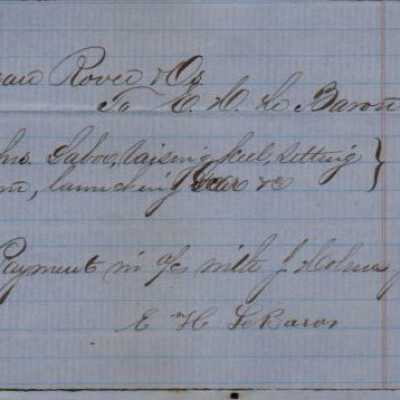 ean Rover & Os
To E. H. Le Baron
hrs. Labor, raising keel, setting
m, launching &c
Payment in a/c with J. Holmes
E H LeBaron